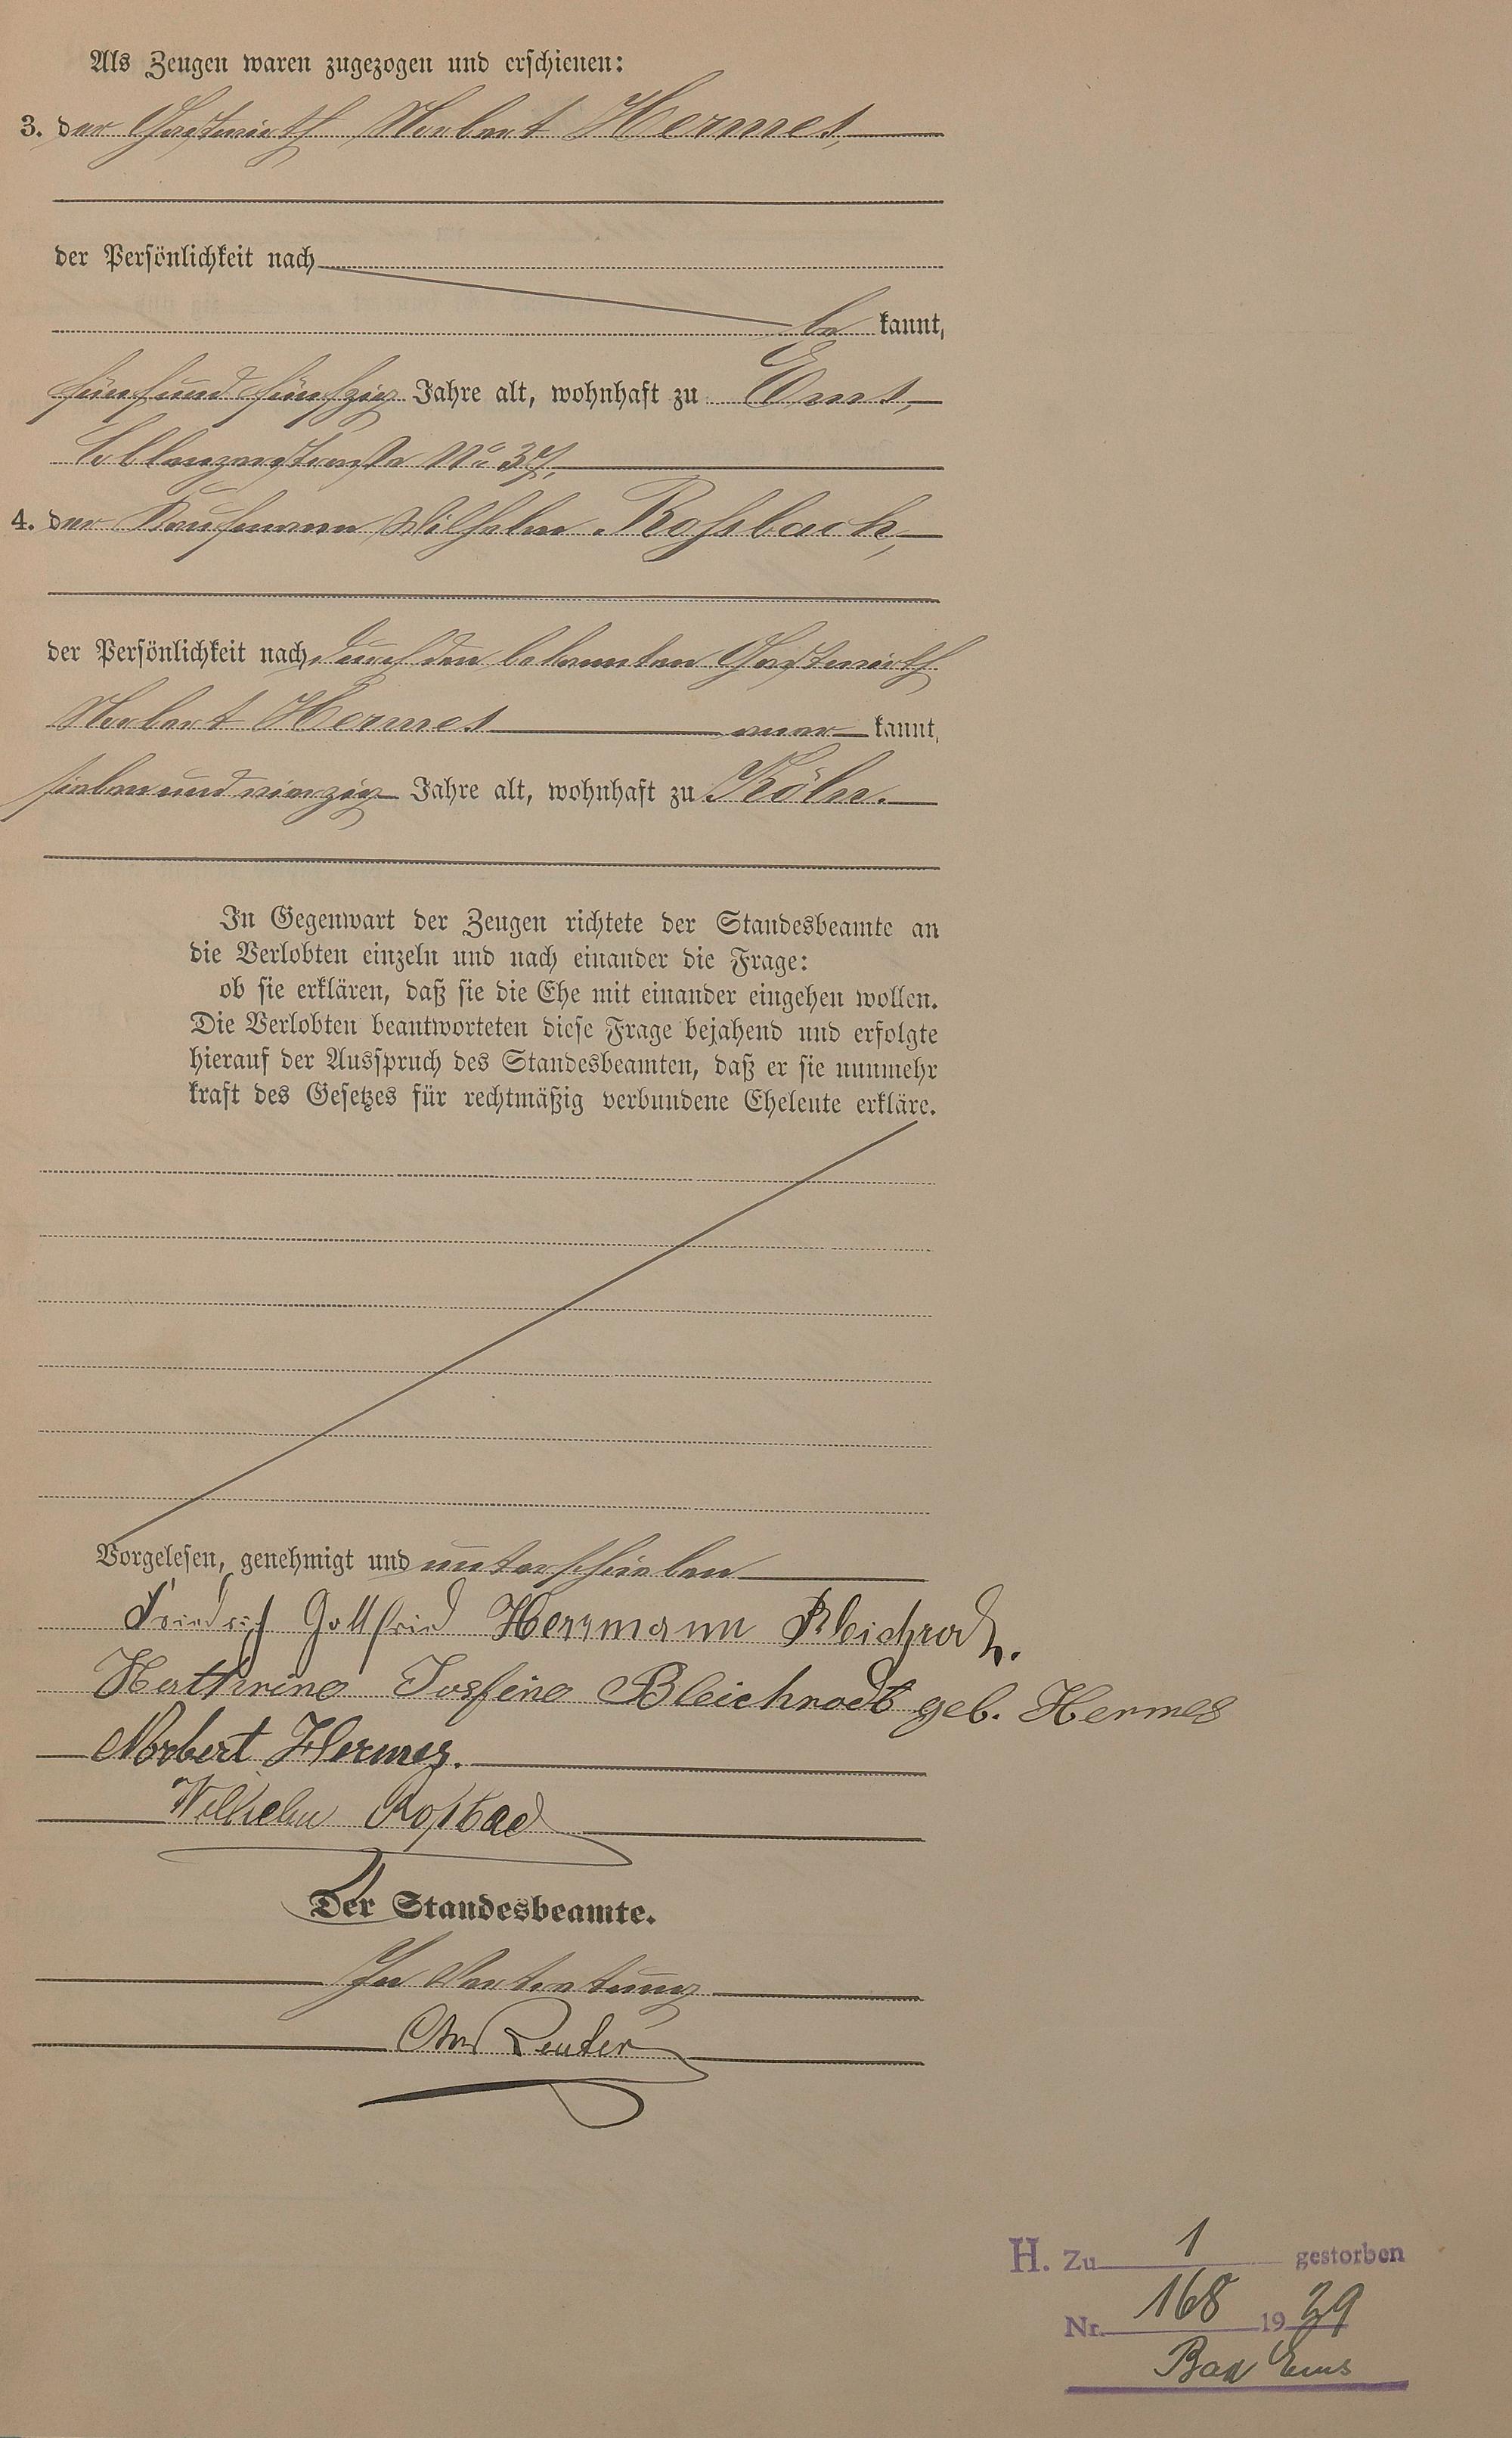 Als Zeugen waren zugezogen und erschienen:
3. der Gastwirth Norbert Hermes,
der Persönlichkeit nach
be kannt,
fünfundfünfzig Jahre alt, wohnhaft zu Ems,
Coblenzerstraße No 37,
4. der Kaufmann Wilhelm Roßbach,
der Persönlichkeit nach durch den bekannten Gastwirth
Norbert Hermes aner kannt,
siebenundvierzig Jahre alt, wohnhaft zu Köln.
In Gegenwart der Zeugen richtete der Standesbeamte an
die Verlobten einzeln und nach einander die Frage:
ob sie erklären, daß sie die Ehe mit einander eingehen wollen.
Die Verlobten beantworteten diese Frage bejahend und erfolgte
hierauf der Ausspruch des Standesbeamten, daß er sie nunmehr
kraft des Gesetzes für rechtmäßig verbundene Eheleute erkläre.
Vorgelesen, genehmigt und unterschrieben
Friedrich Gottfried Herrmann Bleichrodt.
Kathrine Josfine Bleichrodt geb. Hermes
Norbert Hermes.
Wilhelm Roßbach
Der Standesbeamte.
In Vertretung
Reuter
H. Zu 1 gestorben
Nr. 168 1929
Bad Ems